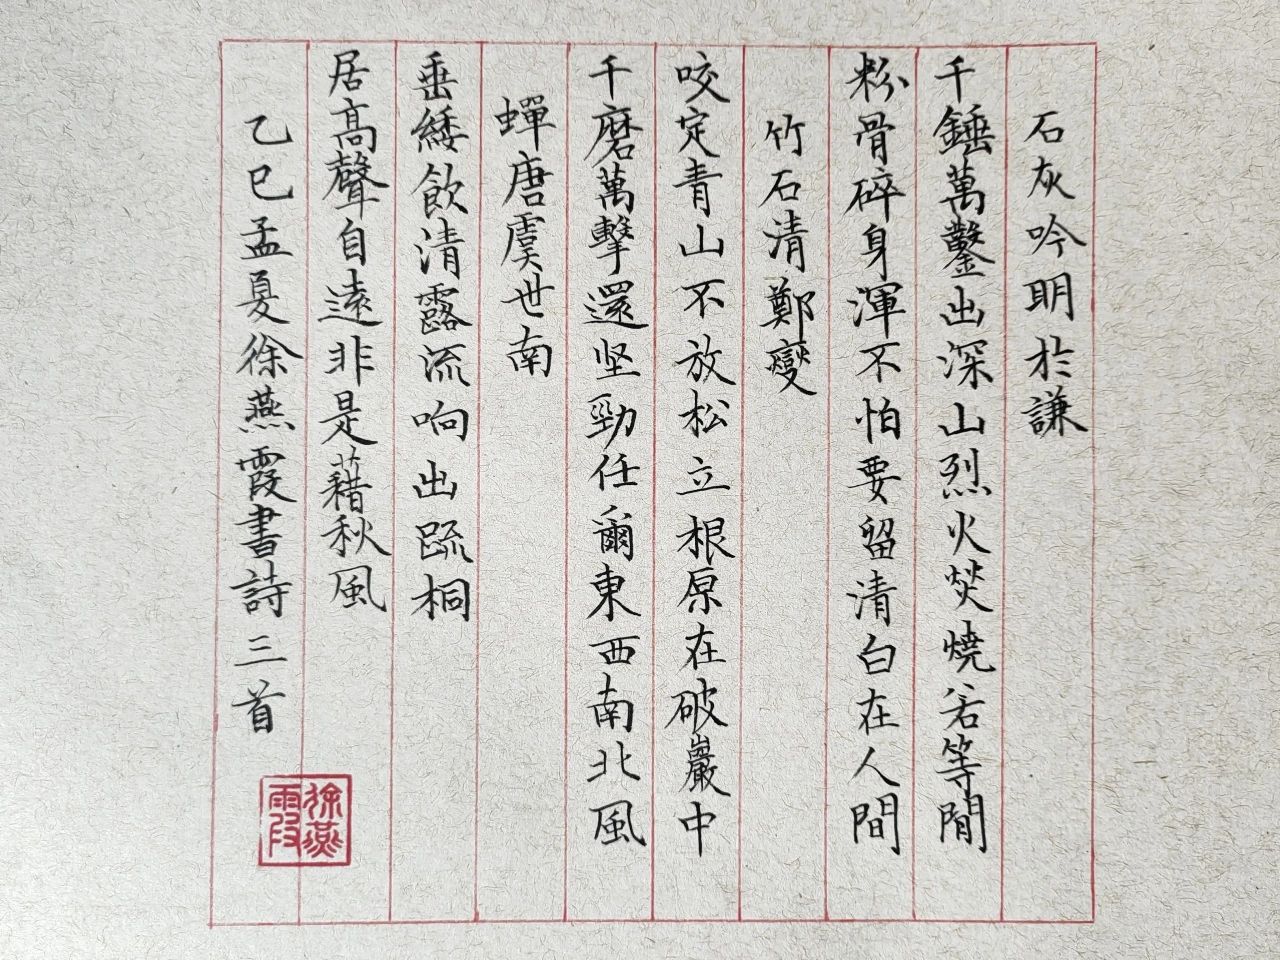 石灰吟明於謙
千錘萬鑿出深山烈火焚燒若等閒
粉骨碎身渾不怕要留清白在人間
竹石清鄭燮
咬定青山不放松立根原在破巖中
千磨萬擊還坚勁任爾東西南北風
蟬唐虞世南
垂緌飲清露流响出疏桐
居高聲自遠非是藉秋風
乙巳孟夏徐燕霞書詩三首
徐燕
霞